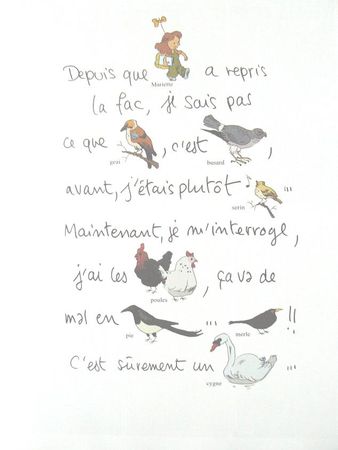 Depuis que a repris
Mariette
la fac, je sais pas
ce que , c'est ,
geai busard
avant, j'étais plutôt ...
serin
Maintenant, je m'interroge,
j'ai les , ça va de
poules
mal en ... !!
pie merle
C'est sûrement un ...
cygne